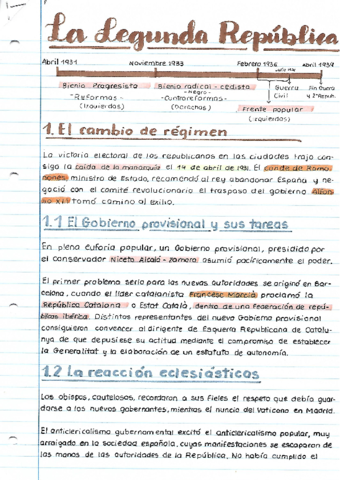 La Segunda República
Abril 1931 Noviembre 1933 Febrero 1936 Abril 1939
Bienio Progresista Bienio radical-cedista Guerra Fin Guerra
-Reformas- -Negro- Civil y 2ª Repúb.
(Izquierdas) -Contrarreformas-
(Derechas) Frente popular
(izquierdas)
1. El cambio de régimen
La victoria electoral de los republicanos en las ciudades trajo con-
sigo la caída de la monarquía el 14 de abril de 1931. El conde de Roma-
nones, ministro de Estado, recomendó al rey abandonar España y ne-
goció con el comité revolucionario el traspaso del gobierno. Alfon-
so XIII tomó camino al exilio.
1.1 El Gobierno provisional y sus tareas
En plena euforia popular, un Gobierno provisional, presidido por
el conservador Niceto Alcalá-Zamora asumió pacíficamente el poder.
El primer problema serio para las nuevas autoridades se originó en Bar-
celona, cuando el líder catalanista Francesc Macià proclamó la
República Catalana o Estat Català, dentro de una Federación de repú-
blicas ibérica. Distintos representantes del nuevo Gobierno provisional
consiguieron convencer al dirigente de Esquerra Republicana de Catalu-
nya, de que depusiese su actitud mediante el compromiso de establecer
la Generalitat y la elaboración de un estatuto de autonomía.
1.2 La reacción eclesiásticos
Los obispos, cautelosos, recordaron a sus fieles el respeto que debía guar-
darse a los nuevos gobernantes, mientras el nuncio del Vaticano en Madrid.
El anticlericalismo gubernamental excitó el anticlericalismo popular, muy
arraigado en la sociedad española, cuyas manifestaciones se escaparon de
las manos de las autoridades de la República. No había cumplido el